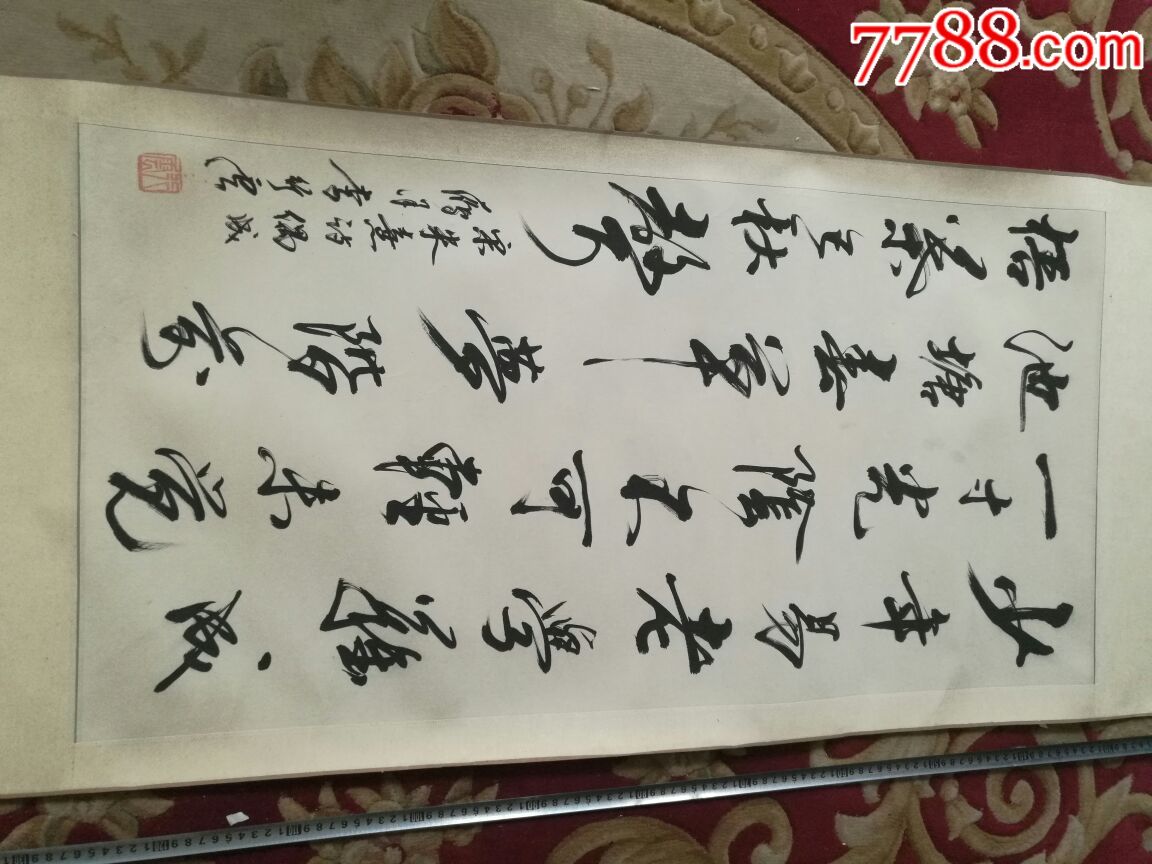 7788.com
少年易老學難成
一寸光陰不可輕未覺
池塘春草夢階前
梧葉已秋聲
宋朱熹詩偶成